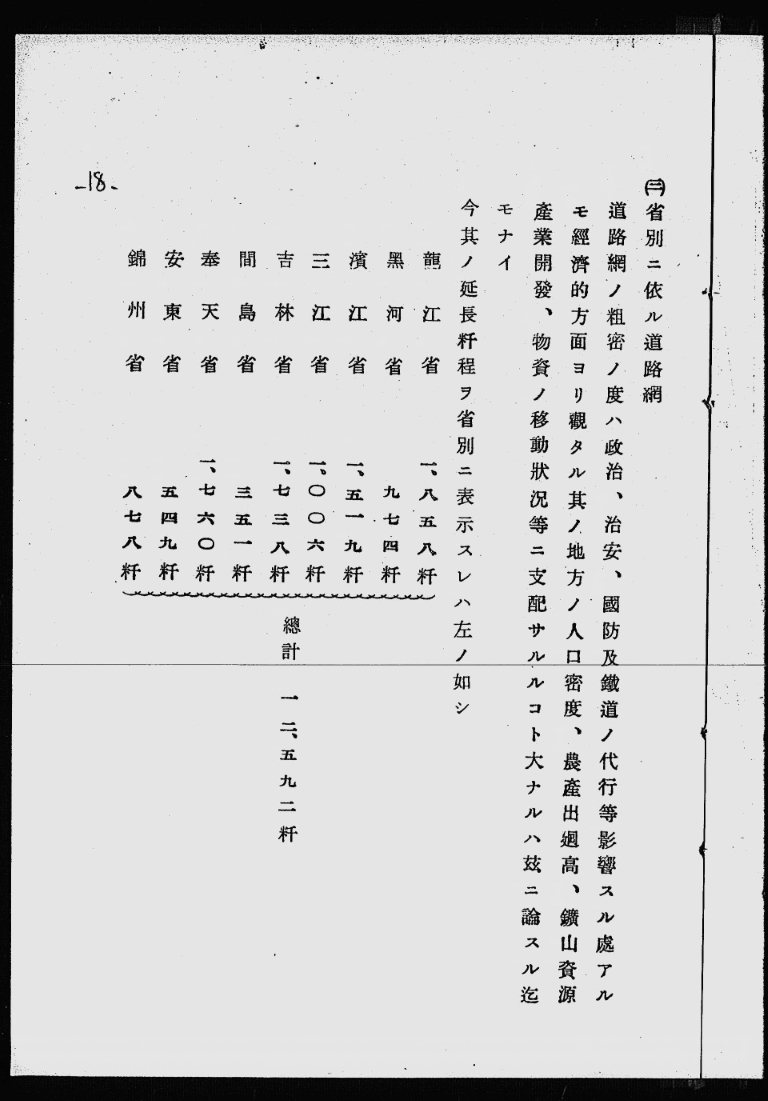 ㈢省別ニ依ル道路網
道路網ノ粗密ノ度ハ政治、治安、國防及鐵道ノ代行等影響スル處アル
モ經濟的方面ヨリ觀タル其ノ地方ノ人口密度、農產出廻高、鑛山資源
產業開發、物資ノ移動狀況等ニ支配サルルコト大ナルハ玆ニ論スル迄
モナイ
今其ノ延長粁程ヲ省別ニ表示スレハ左ノ如シ
龍江省 一、八五八粁
黑河省 九七四粁
濱江省 一、五一九粁
三江省 一、〇〇六粁
吉林省 一、七三八粁
間島省 三五一粁
奉天省 一、七六〇粁
安東省 五四九粁
錦州省 八七八粁
總計 一二、五九二粁
-18-